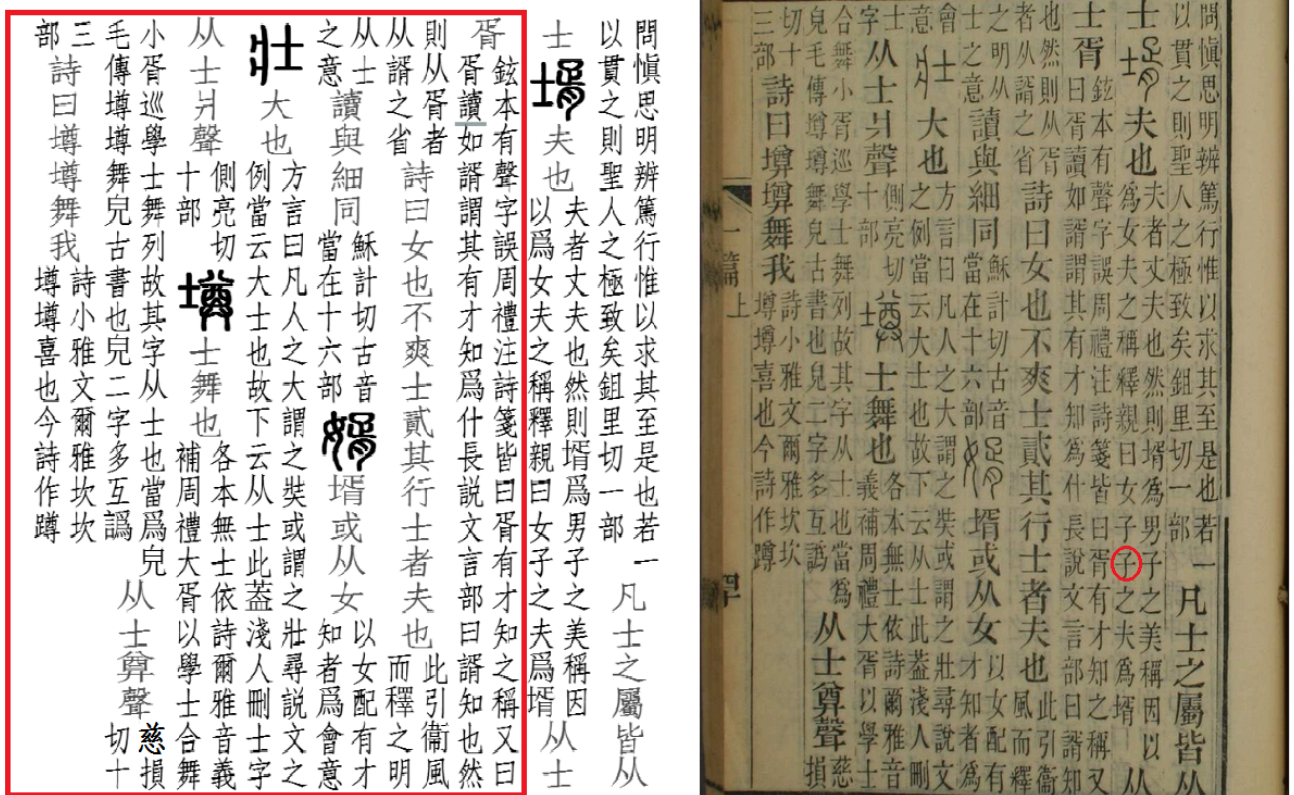 問慎思明辨篤行惟以求其至是也若一以貫之則聖人之極致矣鉏里切一部凡士之屬皆从
士壻夫也夫者丈夫也然則壻爲男子之美稱因以爲女夫之稱釋親曰女子之夫爲壻从士
胥鉉本有聲字誤周禮注詩箋皆曰胥有才知之稱又曰胥讀如諝謂其有才知爲什長説文言部曰諝知也然
則从胥者从諝之省詩曰女也不爽士貳其行士者夫也此引衞風而釋之明
从士之意讀與細同穌計切古音當在十六部婿壻或从女以女配有才知者爲會意
壯大也方言曰凡人之大謂之奘或謂之壯尋説文之例當云大士也故下云从士此葢淺人刪士字
从士爿聲側亮切十部墫士舞也各本無士依詩爾雅音義補周禮大胥以學士合舞
小胥巡學士舞列故其字从士也當爲皃毛傳墫墫舞皃古書也皃二字多互譌从士尊聲慈損切十
三部詩曰墫墫舞我詩小雅文爾雅坎坎墫墫喜也今詩作蹲
問慎思明辨篤行惟以求其至是也若一以貫之則聖人之極致矣鉏里切一部凡士之屬皆从
士壻夫也夫者丈夫也然則壻爲男子之美稱因以爲女夫之稱釋親曰女子子之夫爲壻从
士胥鉉本有聲字誤周禮注詩箋皆曰胥有才知之稱又曰胥讀如諝謂其有才知爲什長說文言部曰諝知
也然則从胥者从諝之省詩曰女也不爽士貳其行士者夫也此引衞風而釋
之明从士之意讀與細同穌計切古音當在十六部婿壻或从女以女配有才知者爲
會意壯大也方言曰凡人之大謂之奘或謂之壯尋說文之例當云大士也故下云从士此葢淺人刪
士字从士爿聲側亮切十部墫士舞也各本無士依詩爾雅音義補周禮大胥以學士
合舞小胥巡學士舞列故其字从士也當爲皃毛傳墫墫舞皃古書也皃二字多互譌从士尊聲慈損
切十三部詩曰墫墫舞我詩小雅文爾雅坎坎墫墫喜也今詩作蹲
一篇上